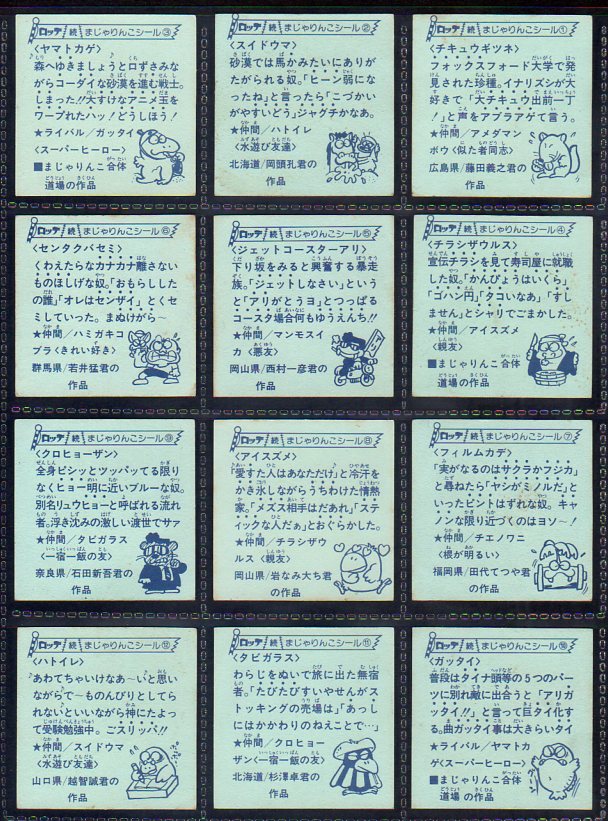 ロッテ 続 まじゃりんこシール③
〈ヤマトカゲ〉
森へゆきましょうと口ずさみな
がらコーダイな砂漠を進む戦士。
しまった!!大すけなアニメ玉を
ワープれたハッ!どうしほう!
★ライバル/ガッタイ
〈スーパーヒーロー〉
■まじゃりんこ合体
道場の作品
ロッテ 続 まじゃりんこシール②
〈スイドウマ〉
砂漠では馬かみたいにありが
たがられる奴。「ヒーン弱にな
ったね」と言ったら「こづかい
がやすいどう」ジャグチかなあ。
★仲間/ハトイレ
〈水遊び友達〉
北海道/岡頭孔君の
作品
ロッテ 続 まじゃりんこシール①
〈チキュウギツネ〉
フォックスフォード大学で発
見された珍種。イナリズシが大
好きで「大チキュウ出前一丁
!」と声をアブラアゲて言う。
★仲間/アメダマン
ボウ〈似た者同志〉
広島県/藤田義之君の
作品
ロッテ 続 まじゃりんこシール⑥
〈センタクバセミ〉
くわえたらなカナカナ離さない
ものほしげな奴。「おもらしした
の誰」「オレはセンザイ」とくせ
ミしていった。まぬけがら〜
★仲間/ハミガキコ
ブラ〈きれい好き〉
群馬県/若井猛君の
作品
ロッテ 続 まじゃりんこシール⑤
〈ジェットコースターアリ〉
下り坂をみると興奮する暴走
族。「ジェットしなさい」という
と「アリがとうヨ」とつっぱる
コースタ場合何もゆうえんち!!
★仲間/マンモスイ
カ〈悪友〉
岡山県/西村一彦君の
作品
ロッテ 続 まじゃりんこシール④
〈チラシザウルス〉
宣伝チラシを見て寿司屋に就職
した奴。「かんぴょうはいくら」
「ゴハン円」「タコいなあ」「すし
ません」とシャリでごまかした。
★仲間/アイスズメ
〈親友〉
■まじゃりんこ合体
道場の作品
ロッテ 続 まじゃりんこシール⑨
〈クロヒョーザン〉
全身ビシッとツッパッてる限り
なくヒョー明に近いブルーな奴。
別名リュウヒョーと呼ばれる流れ
者。浮き沈みの激しい渡世でサァ
★仲間/タビガラス
〈一宿一飯の友〉
奈良県/石田新吾君の
作品
ロッテ 続 まじゃりんこシール⑧
〈アイスズメ〉
「愛すた人はあなただけ」と冷汗を
かき氷しながらうちわけた情熱
家。「メズス相手はだあれ」「ステ
ィックな人だぁ」とおぐらかした。
★仲間/チラシザウ
ルス〈親友〉
岡山県/岩なみ大ち君
の作品
ロッテ 続 まじゃりんこシール⑦
〈フィルムカデ〉
「実がなるのはサクラかフジカ」
と尋ねたら「ヤシがミノルだ」と
いったピントはずれな奴。キャ
ノンな限り近づくのはヨソ〜!
★仲間/チエノワニ
〈根が明るい〉
福岡県/田代てつや君
の作品
ロッテ 続 まじゃりんこシール⑫
〈ハトイレ〉
「あわてちゃいけなあ〜い」と思い
ながらで〜ものんびりとしてら
れないといいながら神にたよっ
て受験勉強中。ごスリッパ!!
★仲間/スイドウマ
〈水遊び友達〉
山口県/越智誠君の
作品
ロッテ 続 まじゃりんこシール⑪
〈タビガラス〉
わらじをぬいで旅に出た無宿
者。「たびたびすいやせんがス
トッキングの売場は」「あっし
にはかかわりのねえことで…」
★仲間/クロヒョー
ザン〈一宿一飯の友〉
北海道/杉澤卓君の
作品
ロッテ 続 まじゃりんこシール⑩
〈ガッタイ〉
普段はタイナ頭等の5つのパー
ツに別れ敵に出会うと「アリガ
ッタイ!!」と言って巨タイ化す
る。曲ガッタイ事は大きらいタイ
★ライバル/ヤマトカ
ゲ〈スーパーヒーロー〉
■まじゃりんこ合体
道場の作品